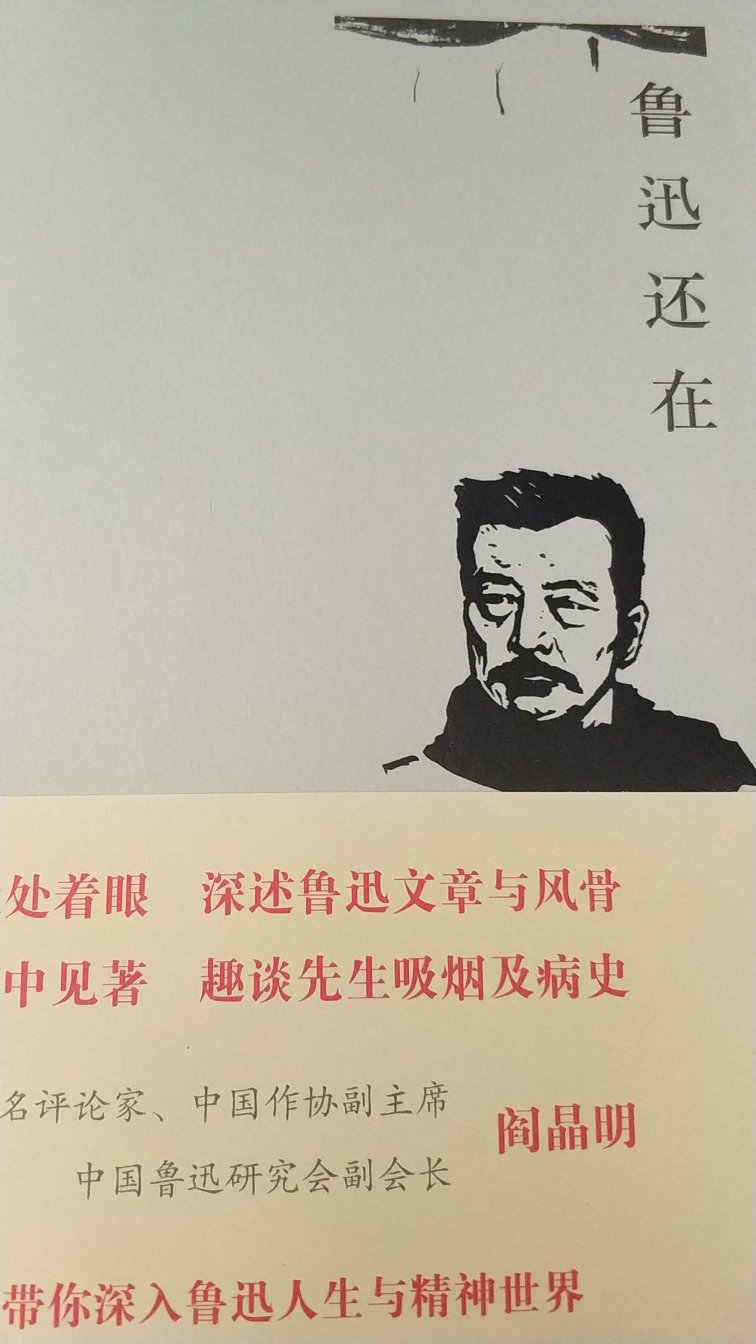 鲁迅还在
处着眼 深述鲁迅文章与风骨
中见著 趣谈先生吸烟及病史
名评论家、中国作协副主席
中国鲁迅研究会副会长
阎晶明
带你深入鲁迅人生与精神世界